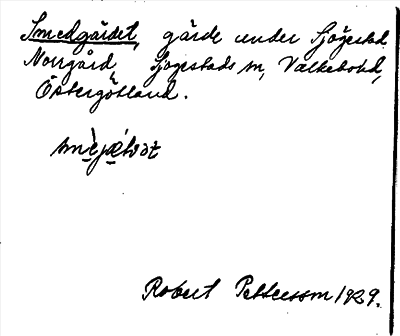 Smedgärdet, gärde under Sjögestad
Norrgård, Sjögestads sn, Valkebo hd,
Östergötland.
Robert Pettersson 1929.